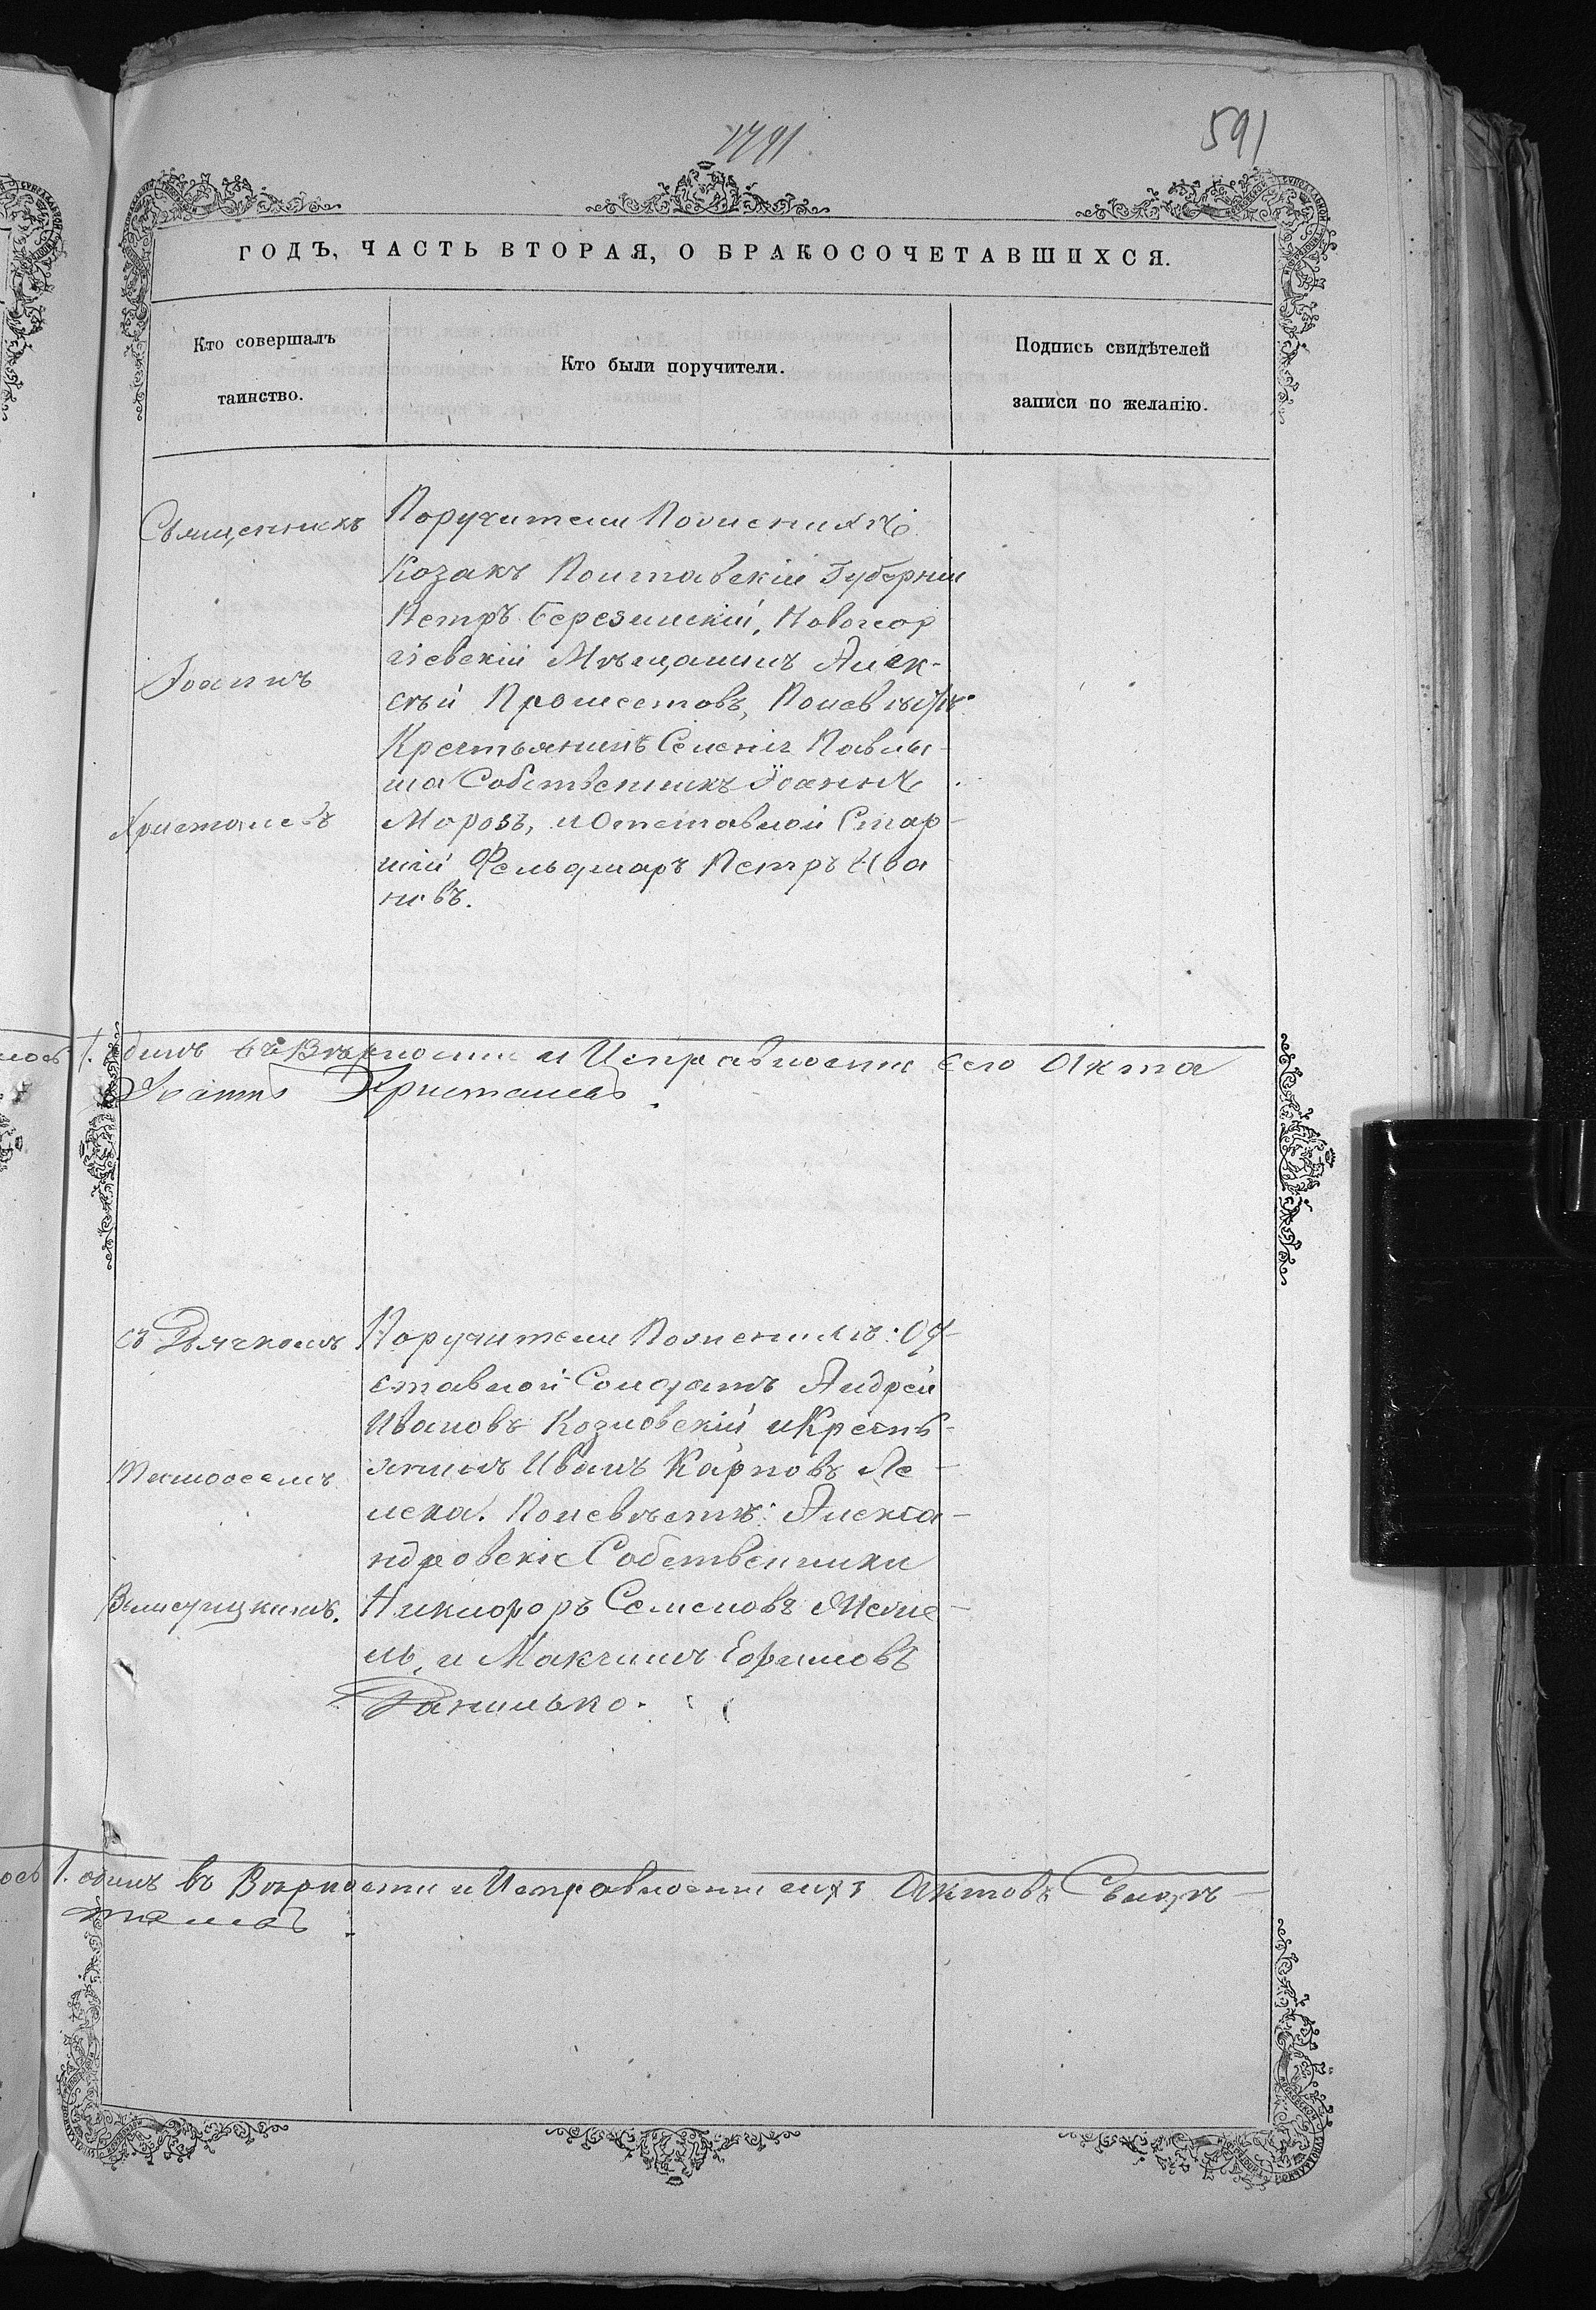 591
ГОДЪ, ЧАСТЬ ВТОРАЯ, О БРАКОСОЧЕТАВШИХСЯ.
Кто совершалъ
таинство.
Кто были поручители.
Подпись свидѣтелей
записи по желанію.
Священникъ
Іоаннъ
Поручители По женихѣ:
Козакъ Полтавскій Губерніи
Петръ Березинскій, Новогеор
гіевскій Мѣщанинъ Алек-
сѣй, По невѣстѣ:
Крестьянинъ Селенія Павлы-
ша Собственникъ Іоаннъ
Морозъ, и Отставной Стар-
шій Фельдшаръ Петръ Ива
новъ.
динъ въ Вѣрности и Исправности сего Акта
Іоаннъ
съ Дьячкомъ
Тимофеемъ
Поручители По женихѣ: От-
ставной Солдатъ Андрей
Ивановъ Козловскій и Кресть-
янинъ Иванъ Карповъ Ле-
лека. По невѣстѣ: Алекса-
ндровскіе Собственники
Никифоръ Семеновъ
ль, и Максимъ Ефимовъ
Данилько.
1. одинъ въ Вѣрности и Исправности сихъ Актовъ